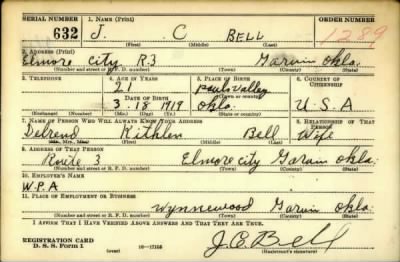 SERIAL NUMBER 1. NAME (Print) ORDER NUMBER
632 J. C BELL 1289
(First) (Middle) (Last)
2. ADDRESS (Print)
Elmore City R.3 Garvin Okla.
(Number and street or R. F. D. number) (Town) (County) (State)
3. TELEPHONE 4. AGE IN YEARS 5. PLACE OF BIRTH 6. COUNTRY OF CITIZENSHIP
21 Pauls Valley
DATE OF BIRTH (Town or county)
3 18 1919 Okla. U S A
(Exchange) (Number) (Mo.) (Day) (Yr.) (State or country)
7. NAME OF PERSON WHO WILL ALWAYS KNOW YOUR ADDRESS 8. RELATIONSHIP OF THAT PERSON
Kithlen Bell Wife
(Mr., Mrs., Miss) (First) (Middle) (Last)
9. ADDRESS OF THAT PERSON
Route 3 Elmore city Garvin Okla.
(Number and street or R. F. D. number) (Town) (County) (State)
10. EMPLOYER'S NAME
W.P.A
11. PLACE OF EMPLOYMENT OR BUSINESS
Wynnewood Garvin Okla.
(Number and street or R. F. D. number) (Town) (County) (State)
I AFFIRM THAT I HAVE VERIFIED ABOVE ANSWERS AND THAT THEY ARE TRUE.
REGISTRATION CARD
D. S. S. Form 1 16—17105 J.C. Bell
(Registrant's signature)